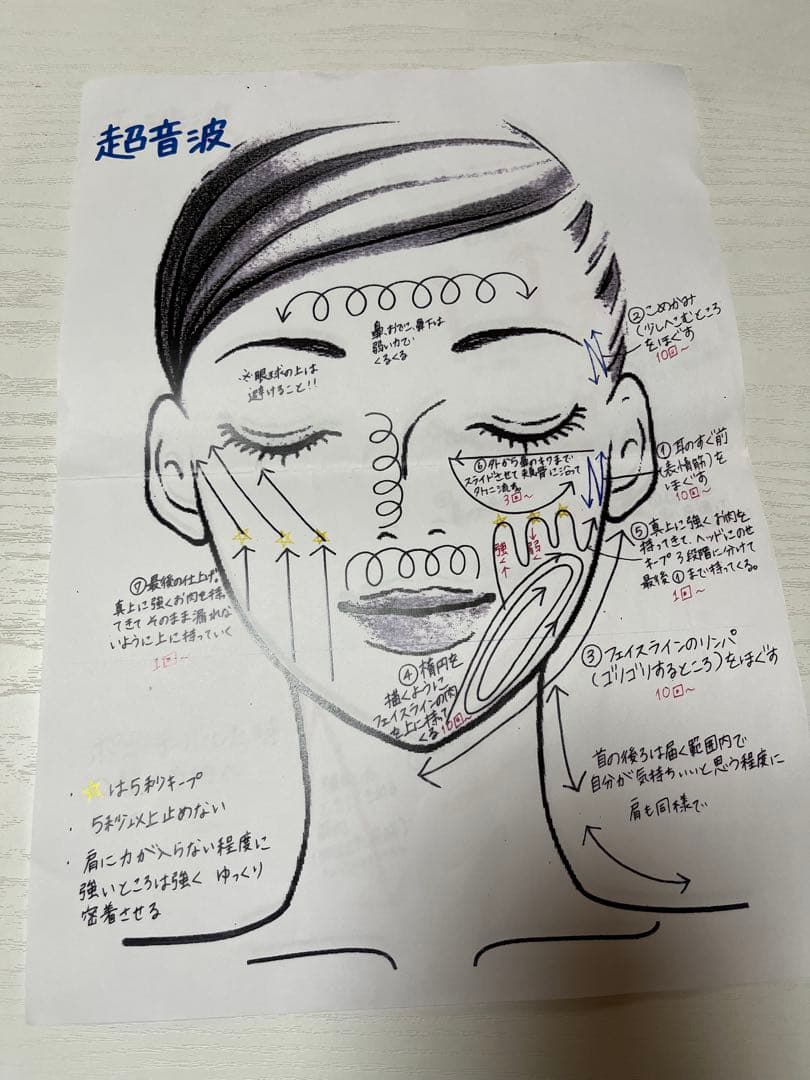 超音波
鼻、おでこ、鼻下は
弱い力で
くるくる
※眼球の上は
避けること!!
②こめかみ
(少しへこむところ
をほぐす
10回~
①耳のすぐ前
(表情筋)を
ほぐす
10回~
⑥外から鼻のキワまで
スライドさせて頬骨に沿って
外に流す
3回~
強く↑
↓弱く
⑤真上に強くお肉を
持ってきて、ヘッドにのせ
キープ 3段階に分けて
最後①まで持ってくる。
1回~
⑦最後の仕上げ。
真上に強くお肉を持っ
てきてそのまま漏れな
いように上に持っていく
1回~
③フェイスラインのリンパ
(ゴリゴリするところ)をほぐす
10回~
④楕円を
描くように
フェイスラインの肉
を上に持って
くる 10回~
首の後ろは届く範囲内で
自分が気持ちいいと思う程度に
肩も同様で
・☆は5秒キープ
・5秒以上止めない
・肩に力が入らない程度に
強いところは強く ゆっくり
密着させる